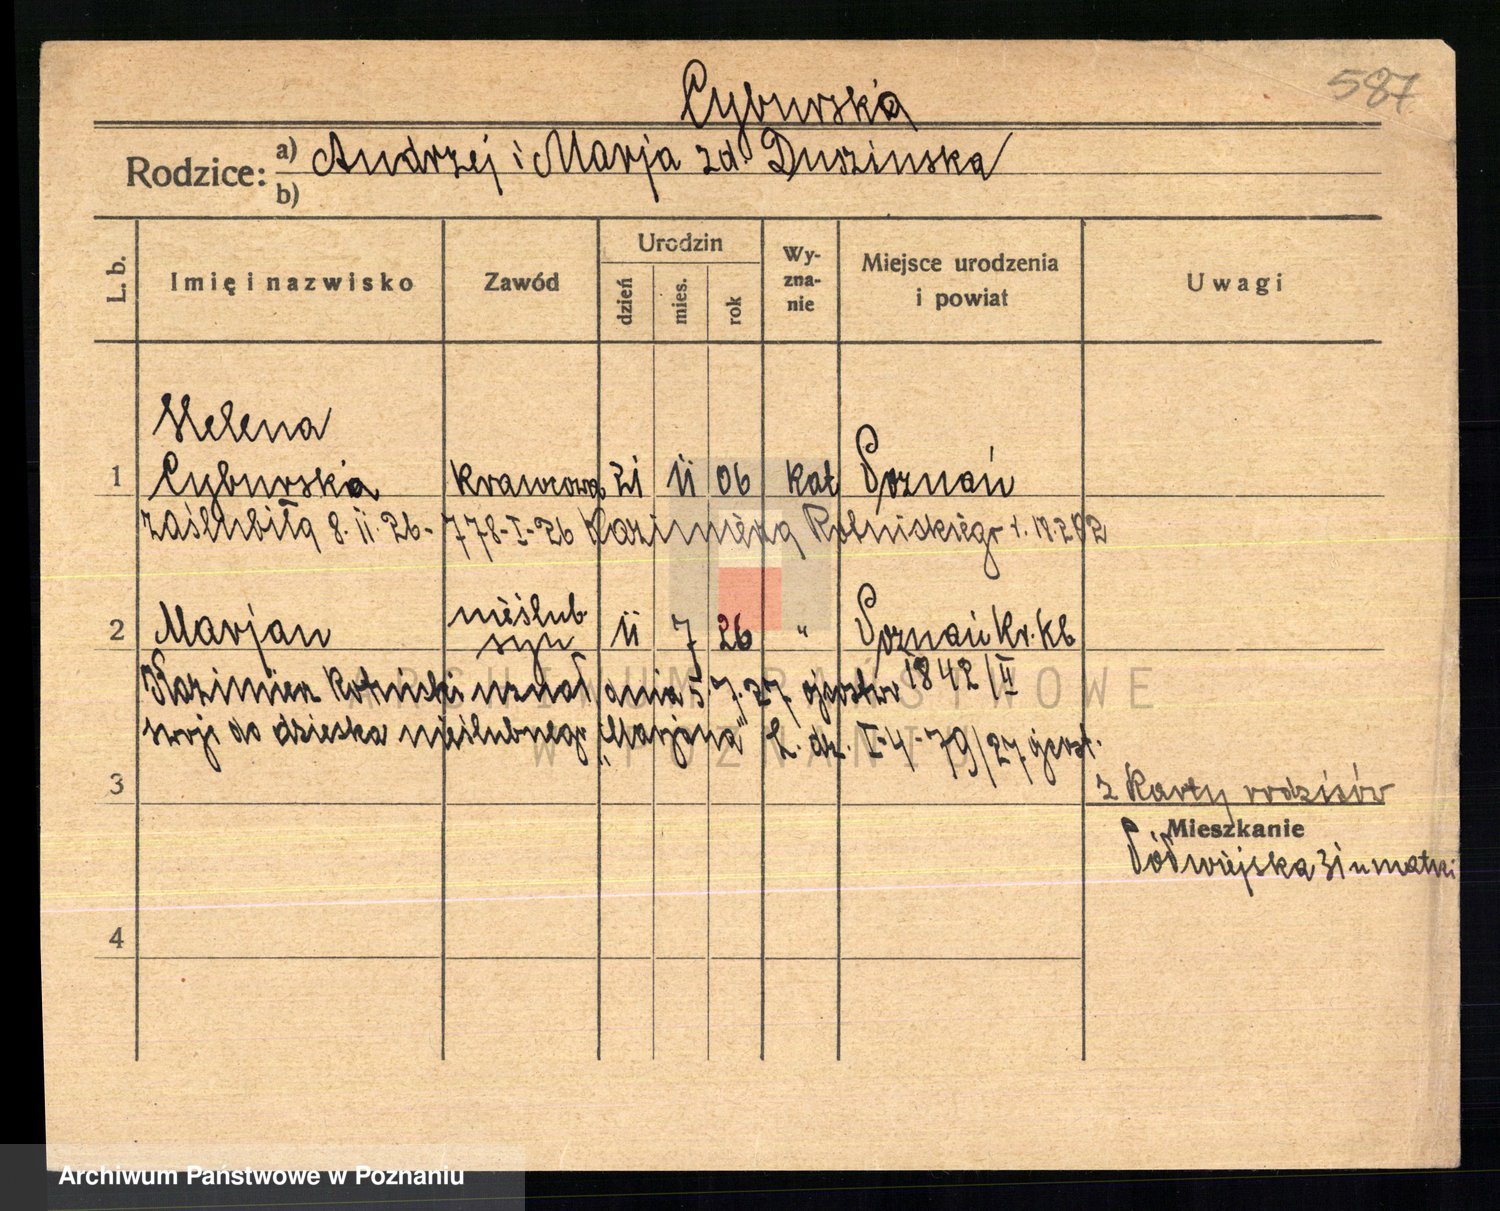 587
Cyburska
Rodzice: a) Andrzej i Marja zd. Duszinska
b)
L. b.
Imię i nazwisko
Zawód
Urodzin
dzień
mies.
rok
Wy-
zna-
nie
Miejsce urodzenia
i powiat
Uwagi
Helena
1 Cyburska krawcowa 21 11 06 kat Poznań
zaślubiła 8. 11. 26. 778-I-26 Kazimierza Rotnickiego
2 Marjan nieślub. syn 11 7 26 " Poznań kr. kb
1842/II
Kazimierz Rotnicki uznał dnia 5.7.27 ojcostwo
swoje do dziecka nieślubnego „Marjana" L. dz. I-4-79/27
3
z karty rodziców
Mieszkanie
Półwiejska 31 u matki
4
ARCHIWUM PAŃSTWOWE
W POZNANIU
Archiwum Państwowe w Poznaniu